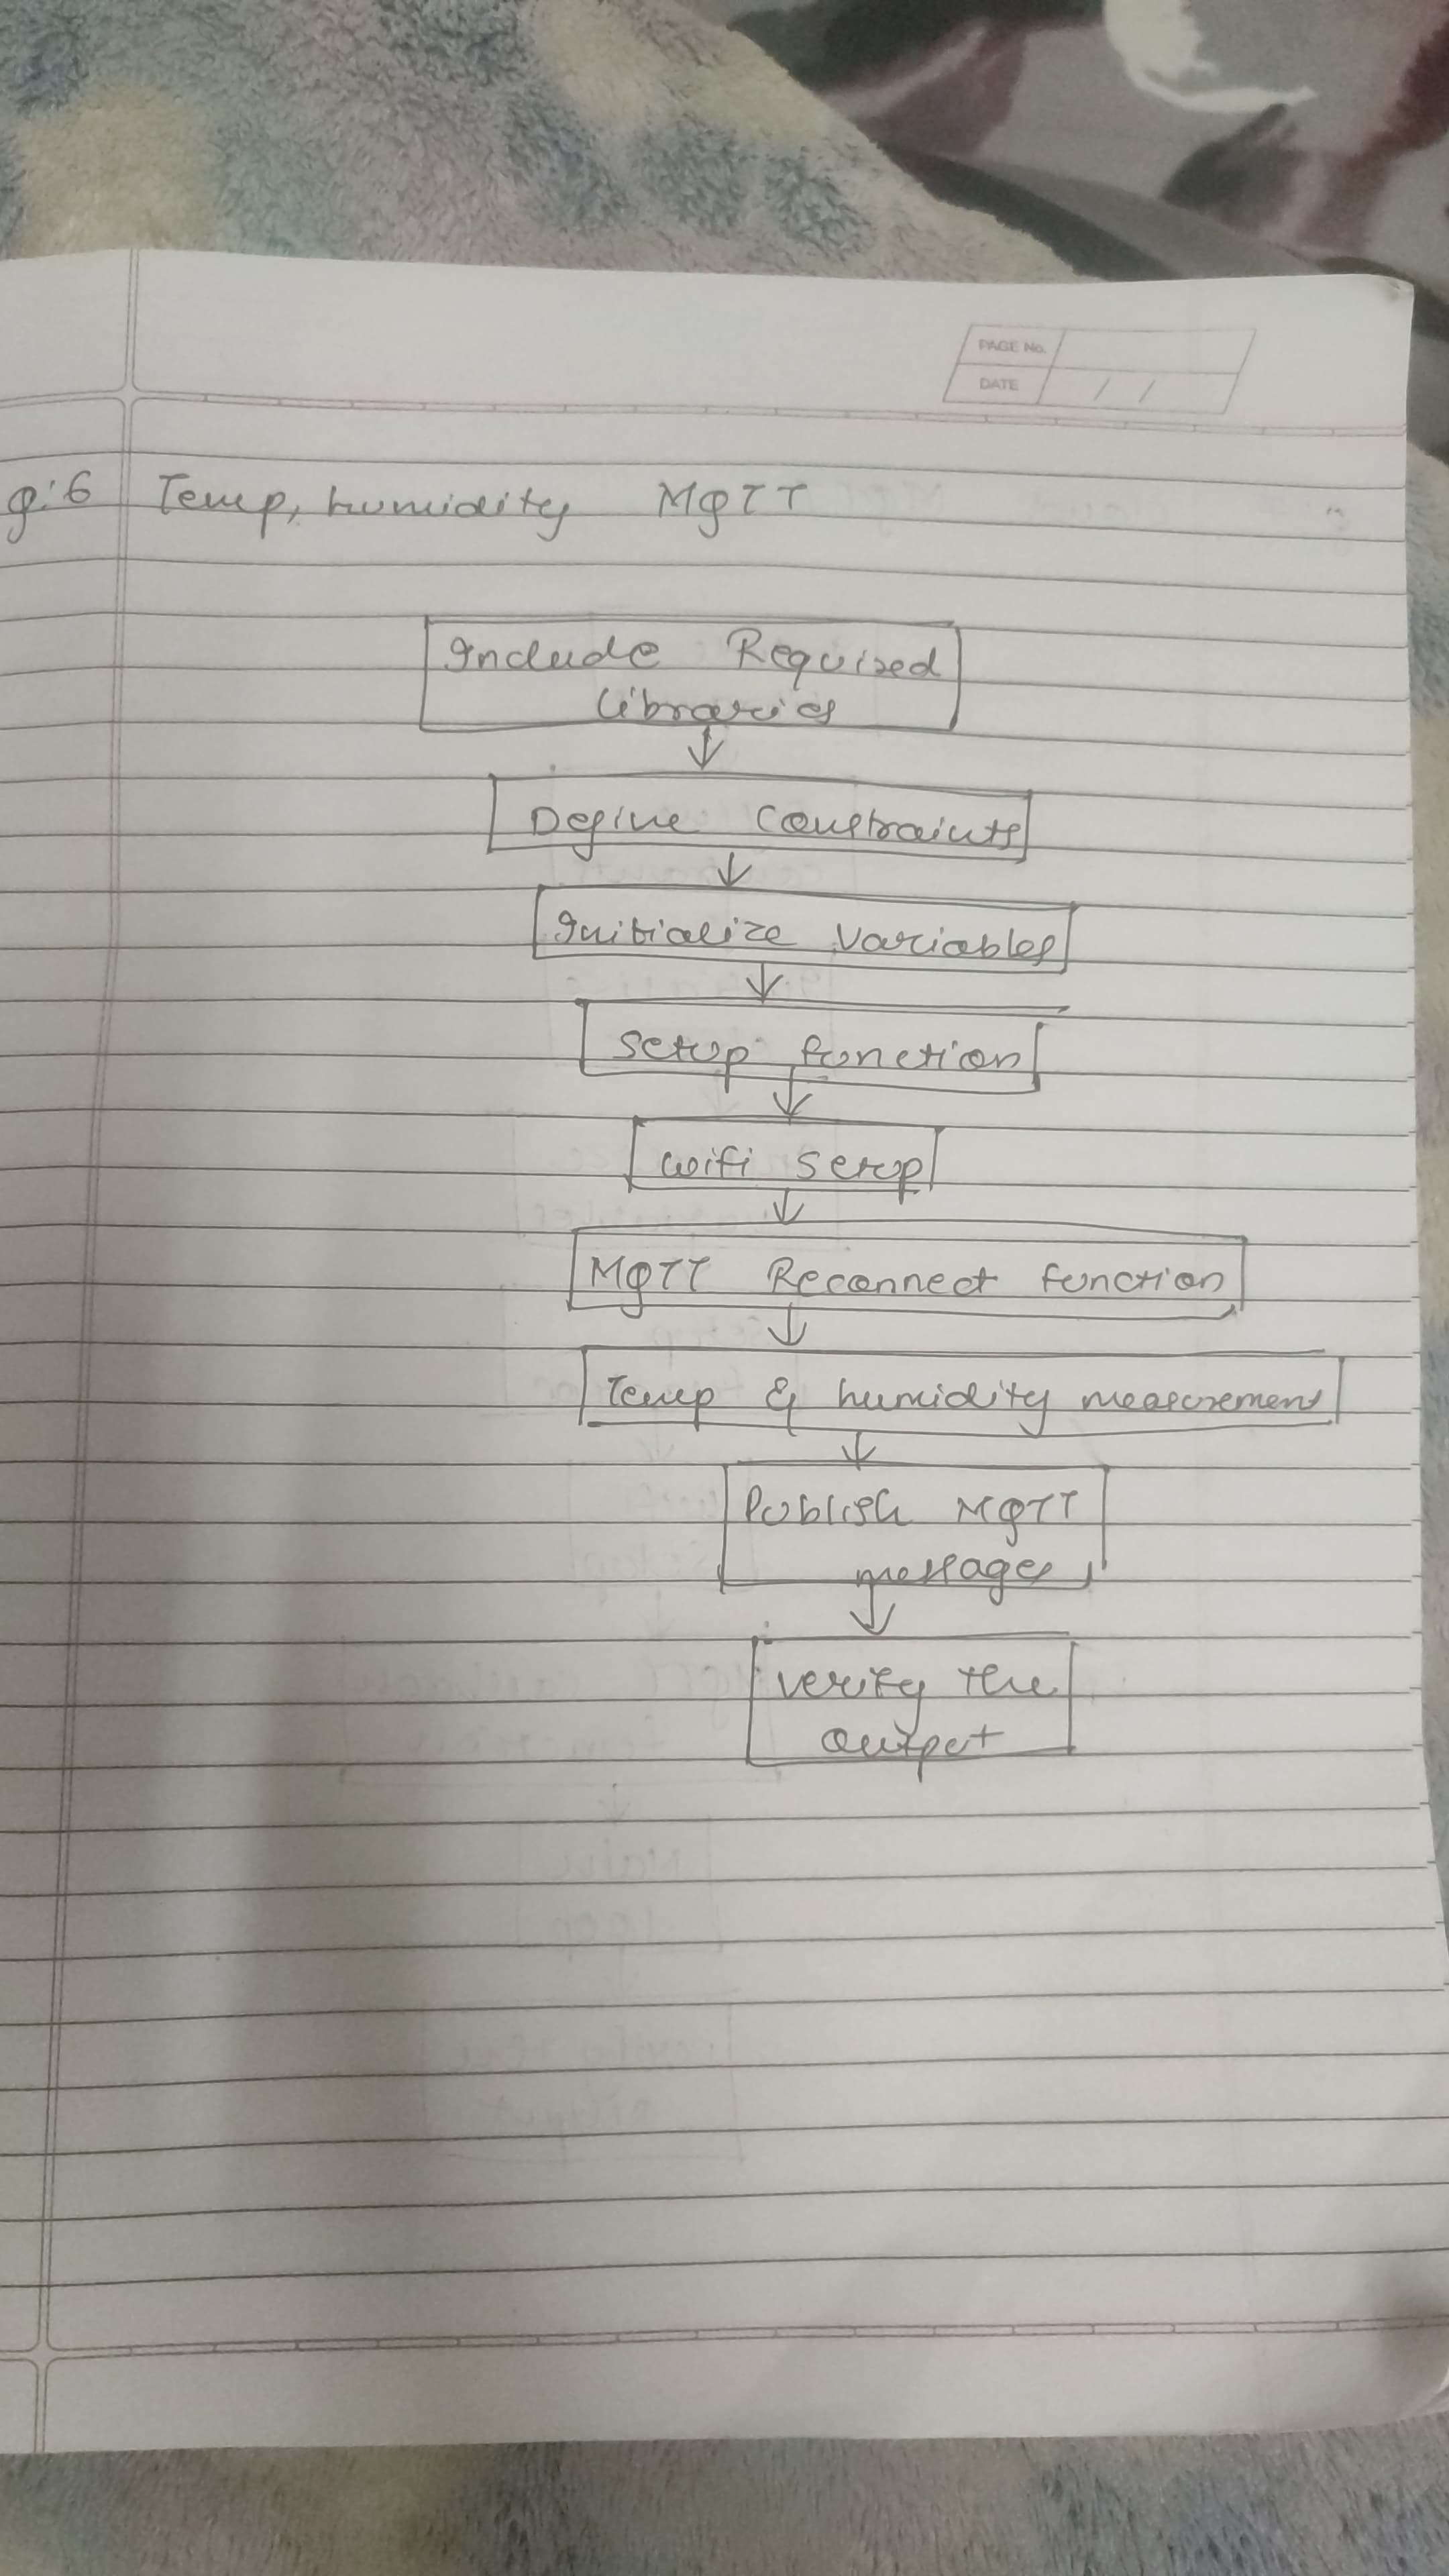 PAGE No.
DATE / /
g:6 Temp, humidity MQTT
Include Required
libraries
Define Constraints
Initialize Variables
Setup function
wifi setup
MQTT Reconnect function
Temp & humidity measurement
Publish MQTT
messages
verify the
output